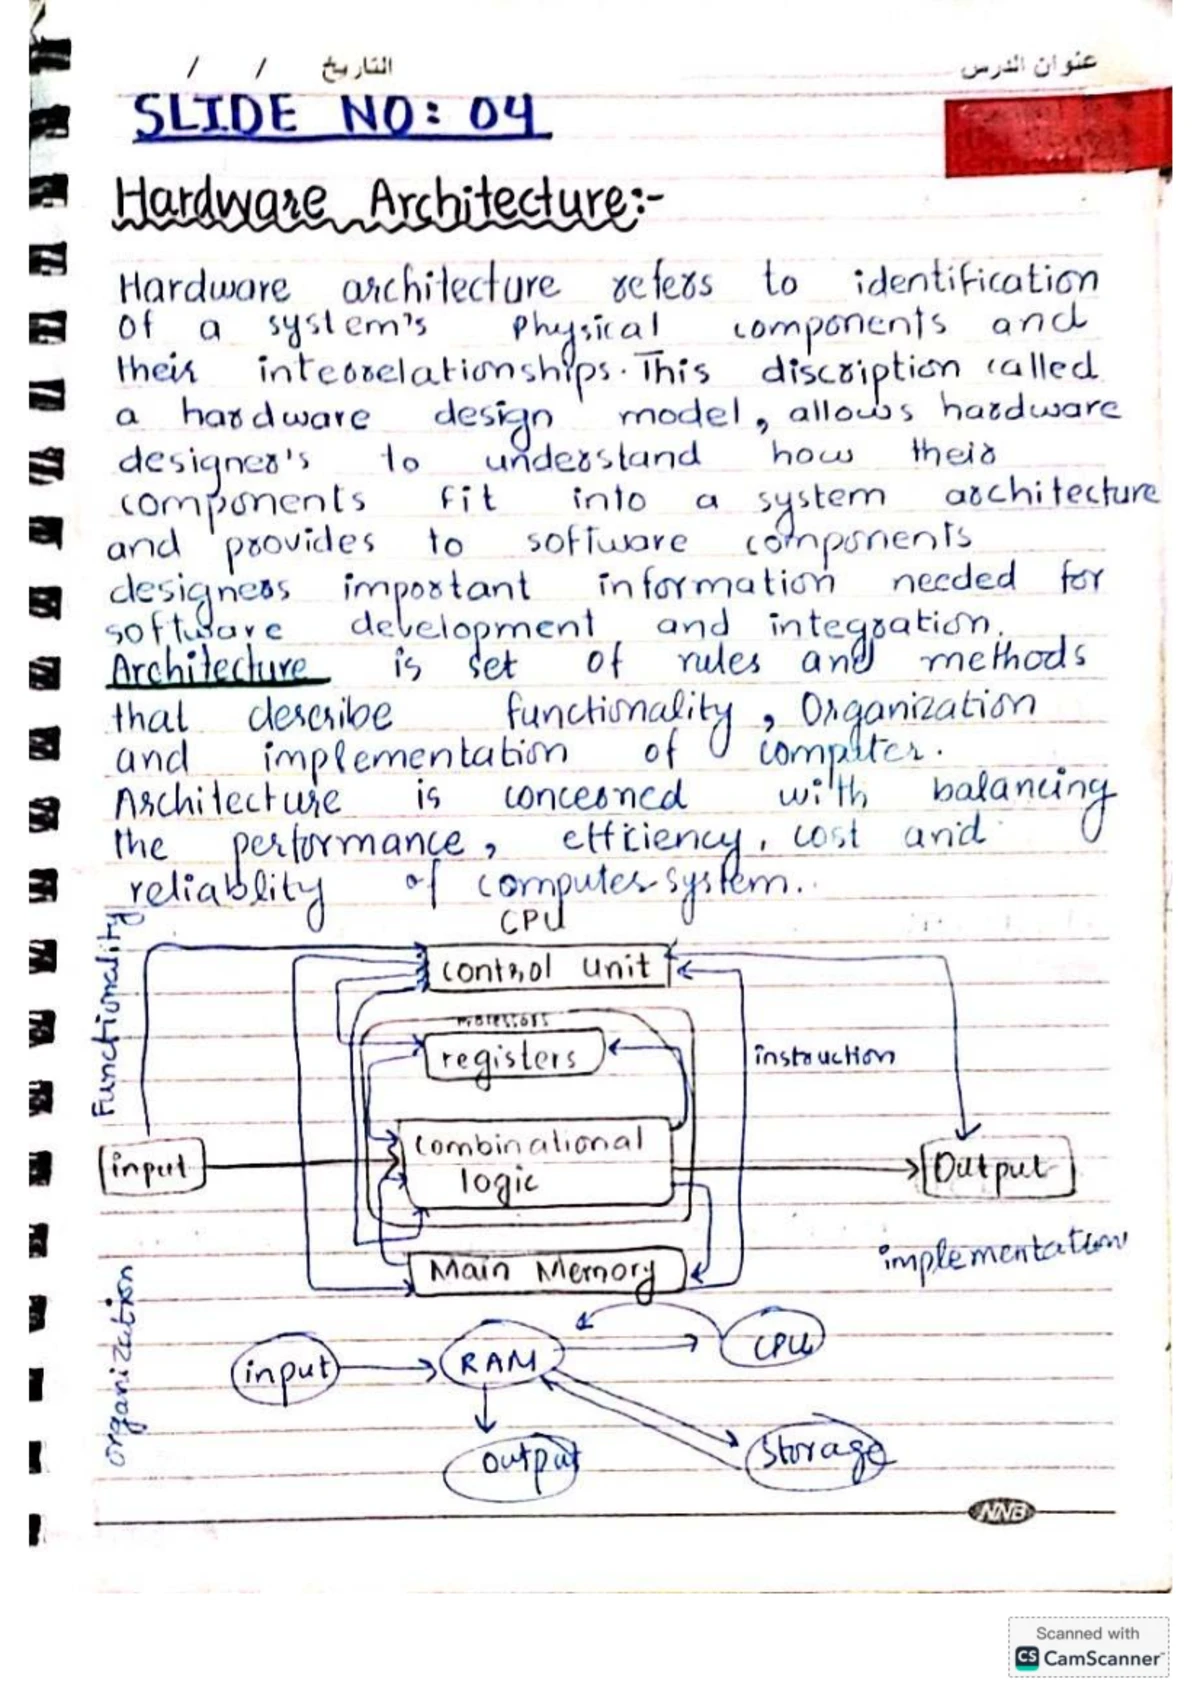 / / التاريخ
عنوان الدرس
SLIDE NO: 04
Hardware Architecture:-
Hardware architecture refers to identification
of a system's Physical components and
their interrelationships. This discription called
a hardware design model, allows hardware
designer's to understand how their
components fit into a system architecture
and provides to software components
designers important information needed for
software development and integration.
Architecture is set of rules and methods
that describe functionality, Organization
and implementation of computer.
Architecture is concerned with balancing
the performance, efficiency, cost and
reliablility of computer system..
CPU
Functionality
control unit
Processors
registers
instruction
input
combinational
logic
Output
Main Memory
implementation
organization
input
RAM
CPU
output
Storage
NNB
Scanned with
CS CamScanner